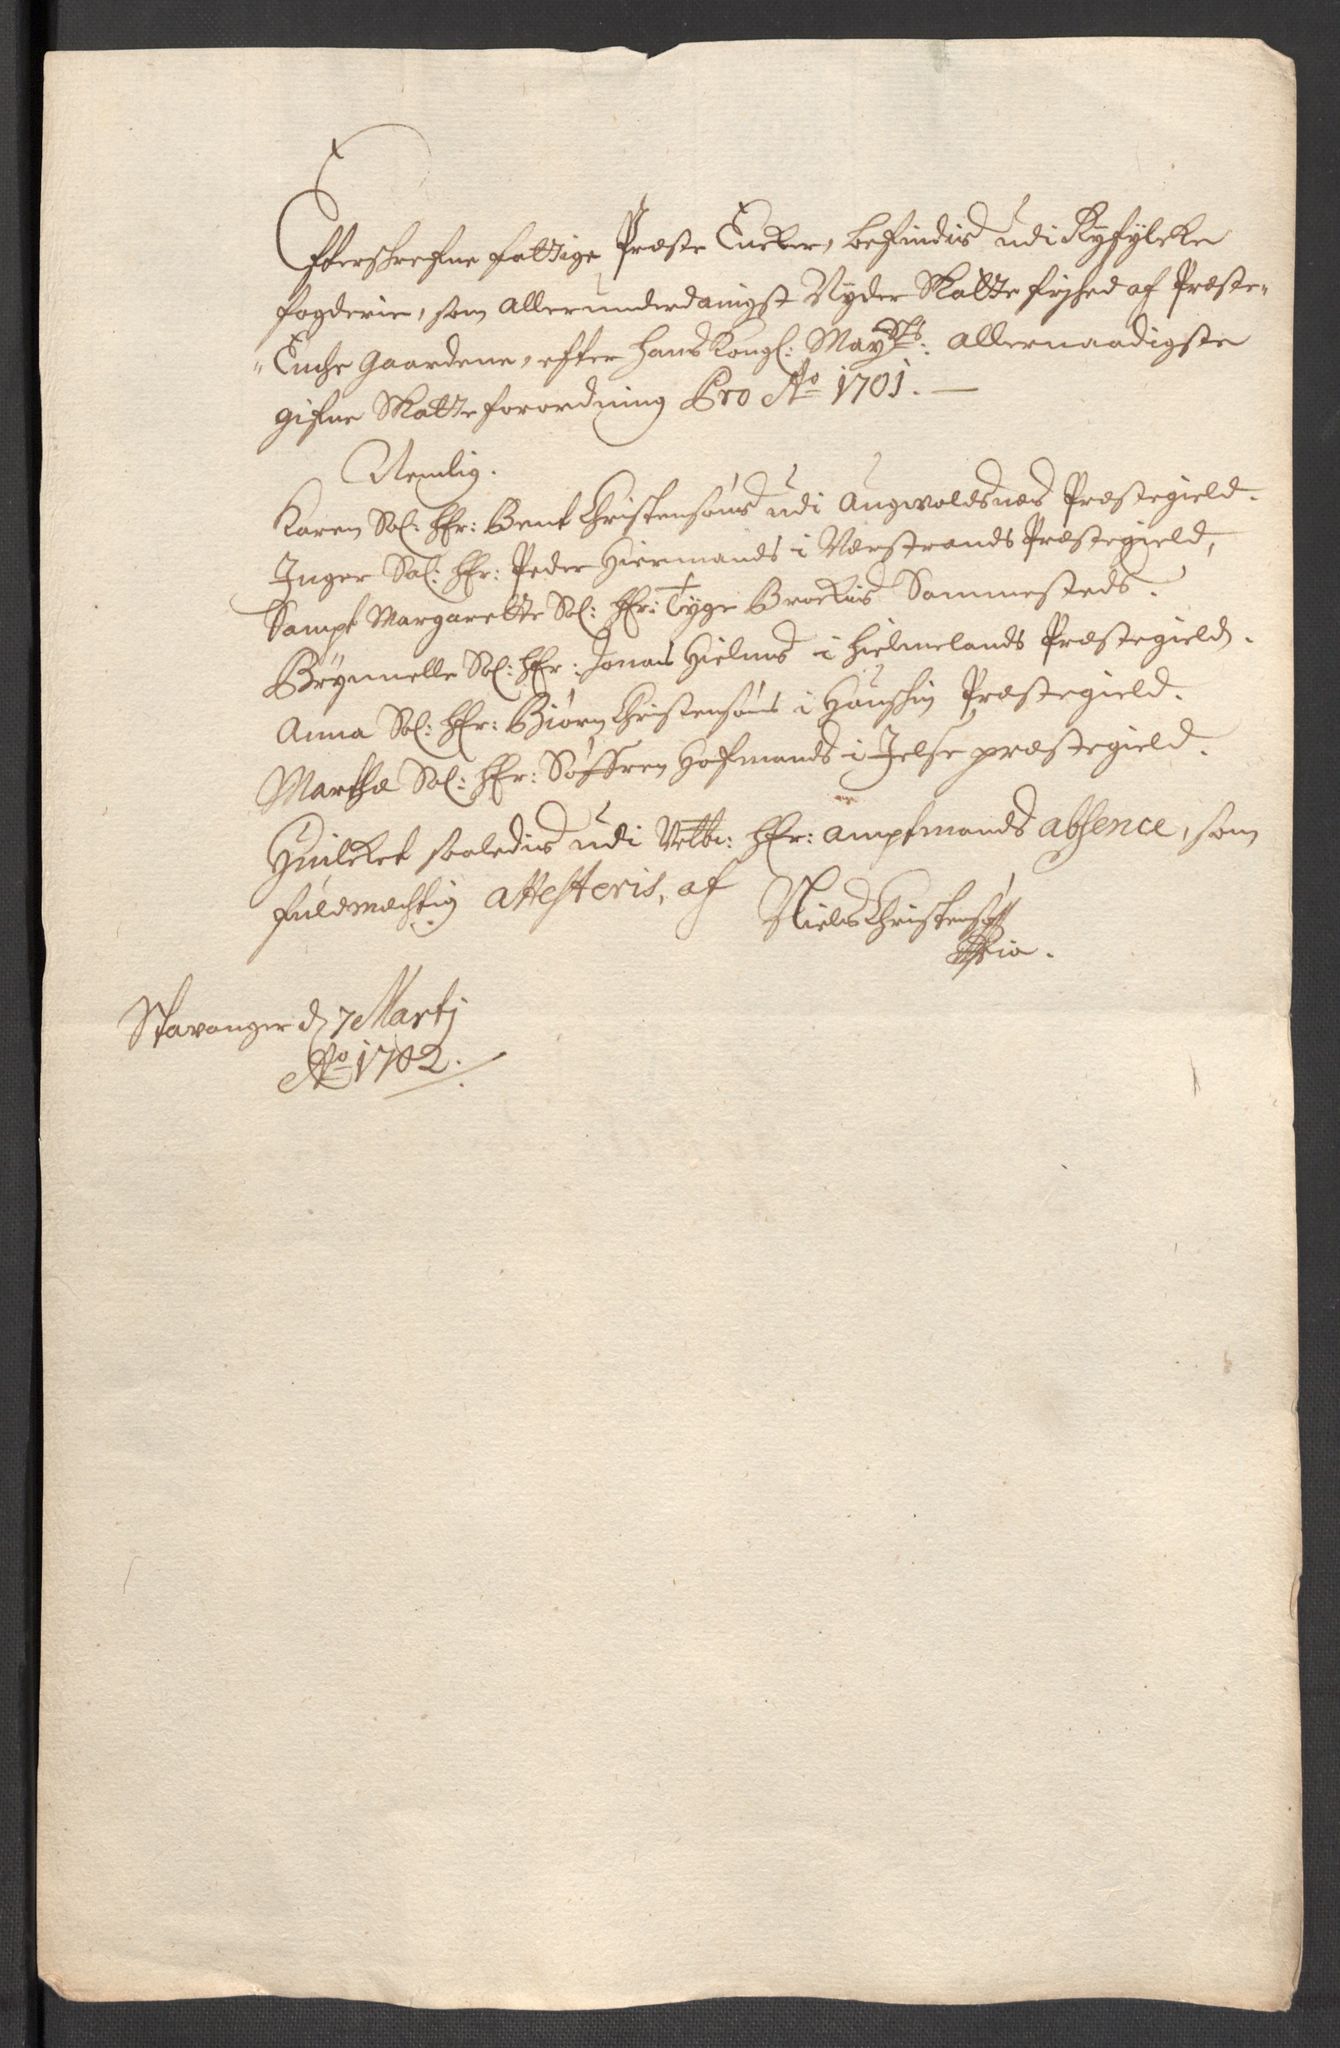 Effterschrefne fattige Præste Encker, befindis udi Ryfylcke
fogderie, som allerunderdanigst Nyder Skatte frihed af Præste-
Enche gaardene, efter hans Kongl: Mayts: allernaadigste
gifne Skatte forordning Pro Ao 1701.
Nemlig.
Karen Sal: Hr: Bent Christensøns udi Augvoldsnes Præstegield.
Inger Sal: Hr: Peder Hiermands i Nerstrands Præstegield,
Sampt Margarette Sal: Hr: Tyge Brockis Sammesteds.
Brynnelle Sal: Hr: Jonas Hielms i Hielmelands Præstegield.
Anna Sal: Hr: Biørn Christensøns i Hauskin Præstegield.
Marthe Sal: Hr: Søffren Hofmands i Jelse præstegield.
Huilcket saaledis udi Velb: Hr: amptmands absence, som
fuldmechtig attesteris, af
Niels Christensøn
Stavanger d 7 Martj
Ao 1702.